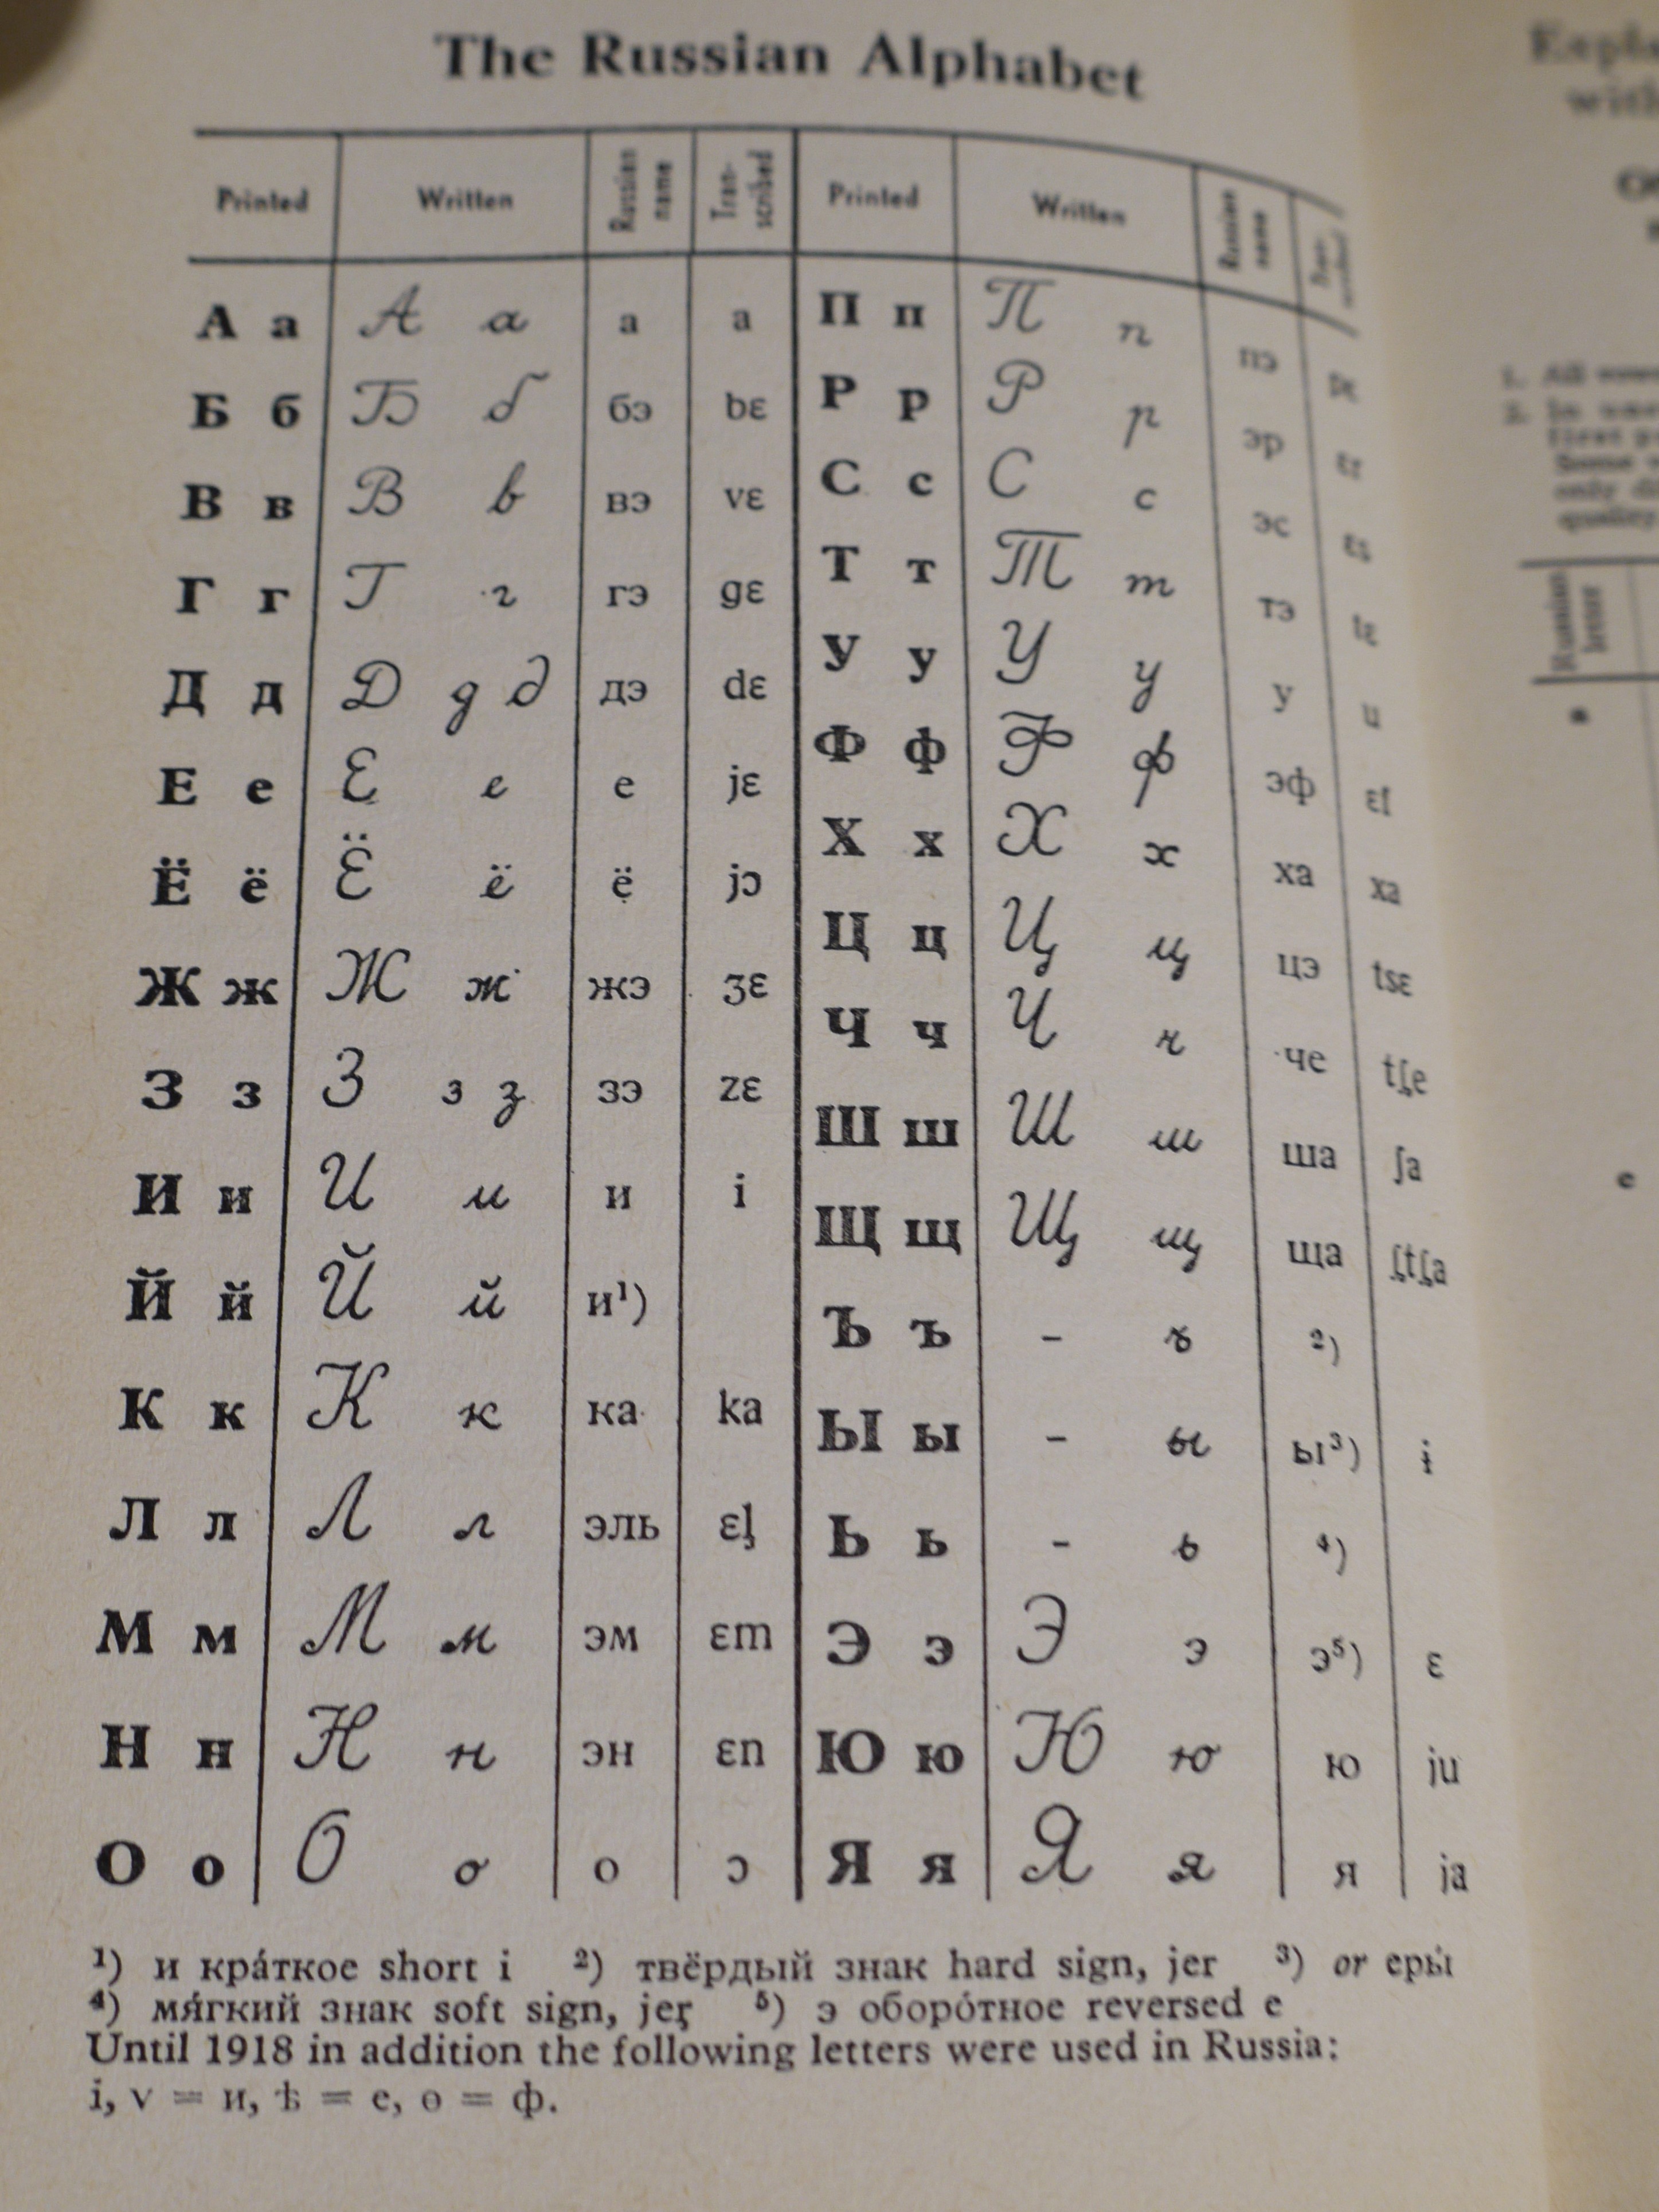 The Russian Alphabet
Printed Written Russian name Tran-scribed Printed Written Russian name
А а А а а a П п П п пэ
Б б Б б бэ bɛ Р р Р р эр
В в В в вэ vɛ С с С с эс
Г г Г г гэ gɛ Т т Т т тэ
Д д Д д д дэ dɛ У у У у у u
Е е Е е е jɛ Ф ф Ф ф эф ɛf
Ё ё Ё ё ё jɔ Х х Х х ха xa
Ж ж Ж ж жэ ʒɛ Ц ц Ц ц цэ tsɛ
З з З з з зэ zɛ Ч ч Ч ч че tʃ̢e
И и И и и i Ш ш Ш ш ша ʃa
Й й Й й и¹) Щ щ Щ щ ща ʃ̢tʃ̢a
К к К к ка ka Ъ ъ – ъ ²)
Л л Л л эль ɛl̢ Ы ы – ы ы³) ɨ
М м М м эм ɛm Ь ь – ь ⁴)
Н н Н н эн ɛn Э э Э э э⁵) ɛ
О о О о о ɔ Ю ю Ю ю ю ju
Я я Я я я ja
¹) и кра́ткое short i ²) твёрдый знак hard sign, jer ³) or еры́
⁴) мя́гкий знак soft sign, jer̢ ⁵) э оборо́тное reversed e
Until 1918 in addition the following letters were used in Russia:
i, v = и, ѣ = e, ѳ = ф.
with
1. All
2. In
first
Some
only
quality
Russian letter
а
е